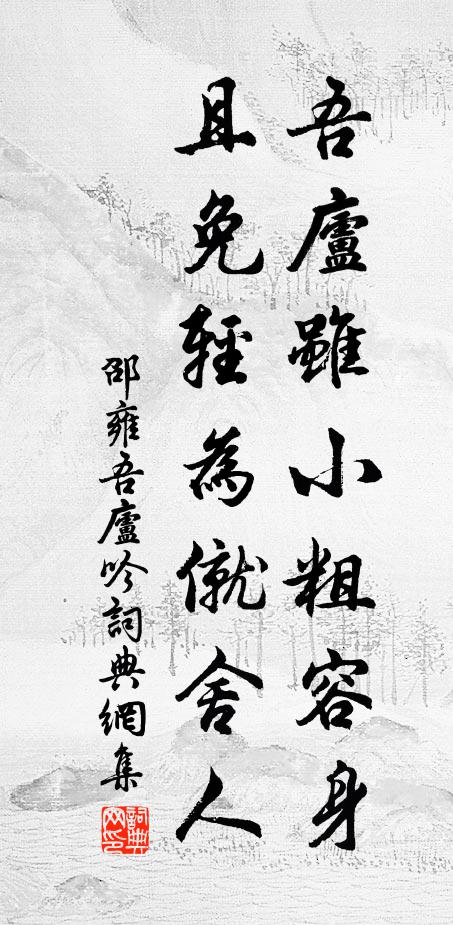 吾廬雖小粗容身
且免輕為僦舍人
邵雍吾廬吟詞典網集
詞典网印